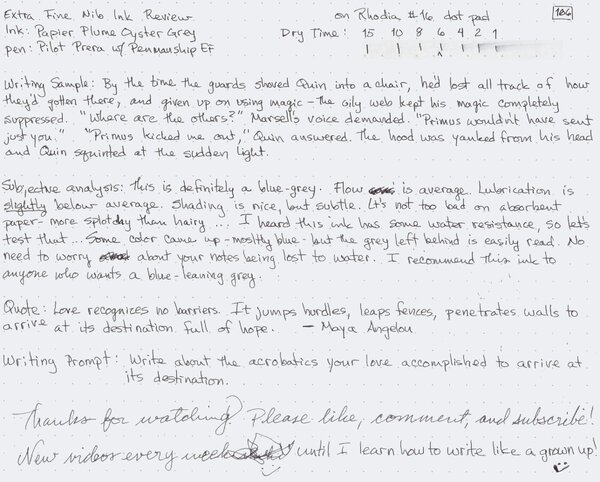 Extra Fine Nib Ink Review on Rhodia #16 dot pad 186
Ink: Papier Plume Oyster Grey Dry Time: 15 10 8 6 4 2 1
pen: Pilot Prera w/ Penmanship EF
Writing Sample: By the time the guards shoved Quin into a chair, he'd lost all track of how
they'd gotten there, and given up on using magic - the oily web kept his magic completely
suppressed. "Where are the others?" Marsell's voice demanded. "Primus wouldn't have sent
just you." "Primus kicked me out," Quin answered. The hood was yanked from his head
and Quin squinted at the sudden light.
Subjective analysis: This is definitely a blue-grey. Flow is average. Lubrication is
slightly below average. Shading is nice, but subtle. It's not too bad on absorbent
paper - more splotchy than hairy... I heard this ink has some water resistance, so let's
test that... Some color came up - mostly blue - but the grey left behind is easily read. No
need to worry about your notes being lost to water. I recommend this ink to
anyone who wants a blue-leaning grey.
Quote: Love recognizes no barriers. It jumps hurdles, leaps fences, penetrates walls to
arrive at its destination full of hope. - Maya Angelou
Writing Prompt: Write about the acrobatics your love accomplished to arrive at
its destination.
Thanks for watching! Please like, comment, and subscribe!
New videos every week until I learn how to write like a grown up!